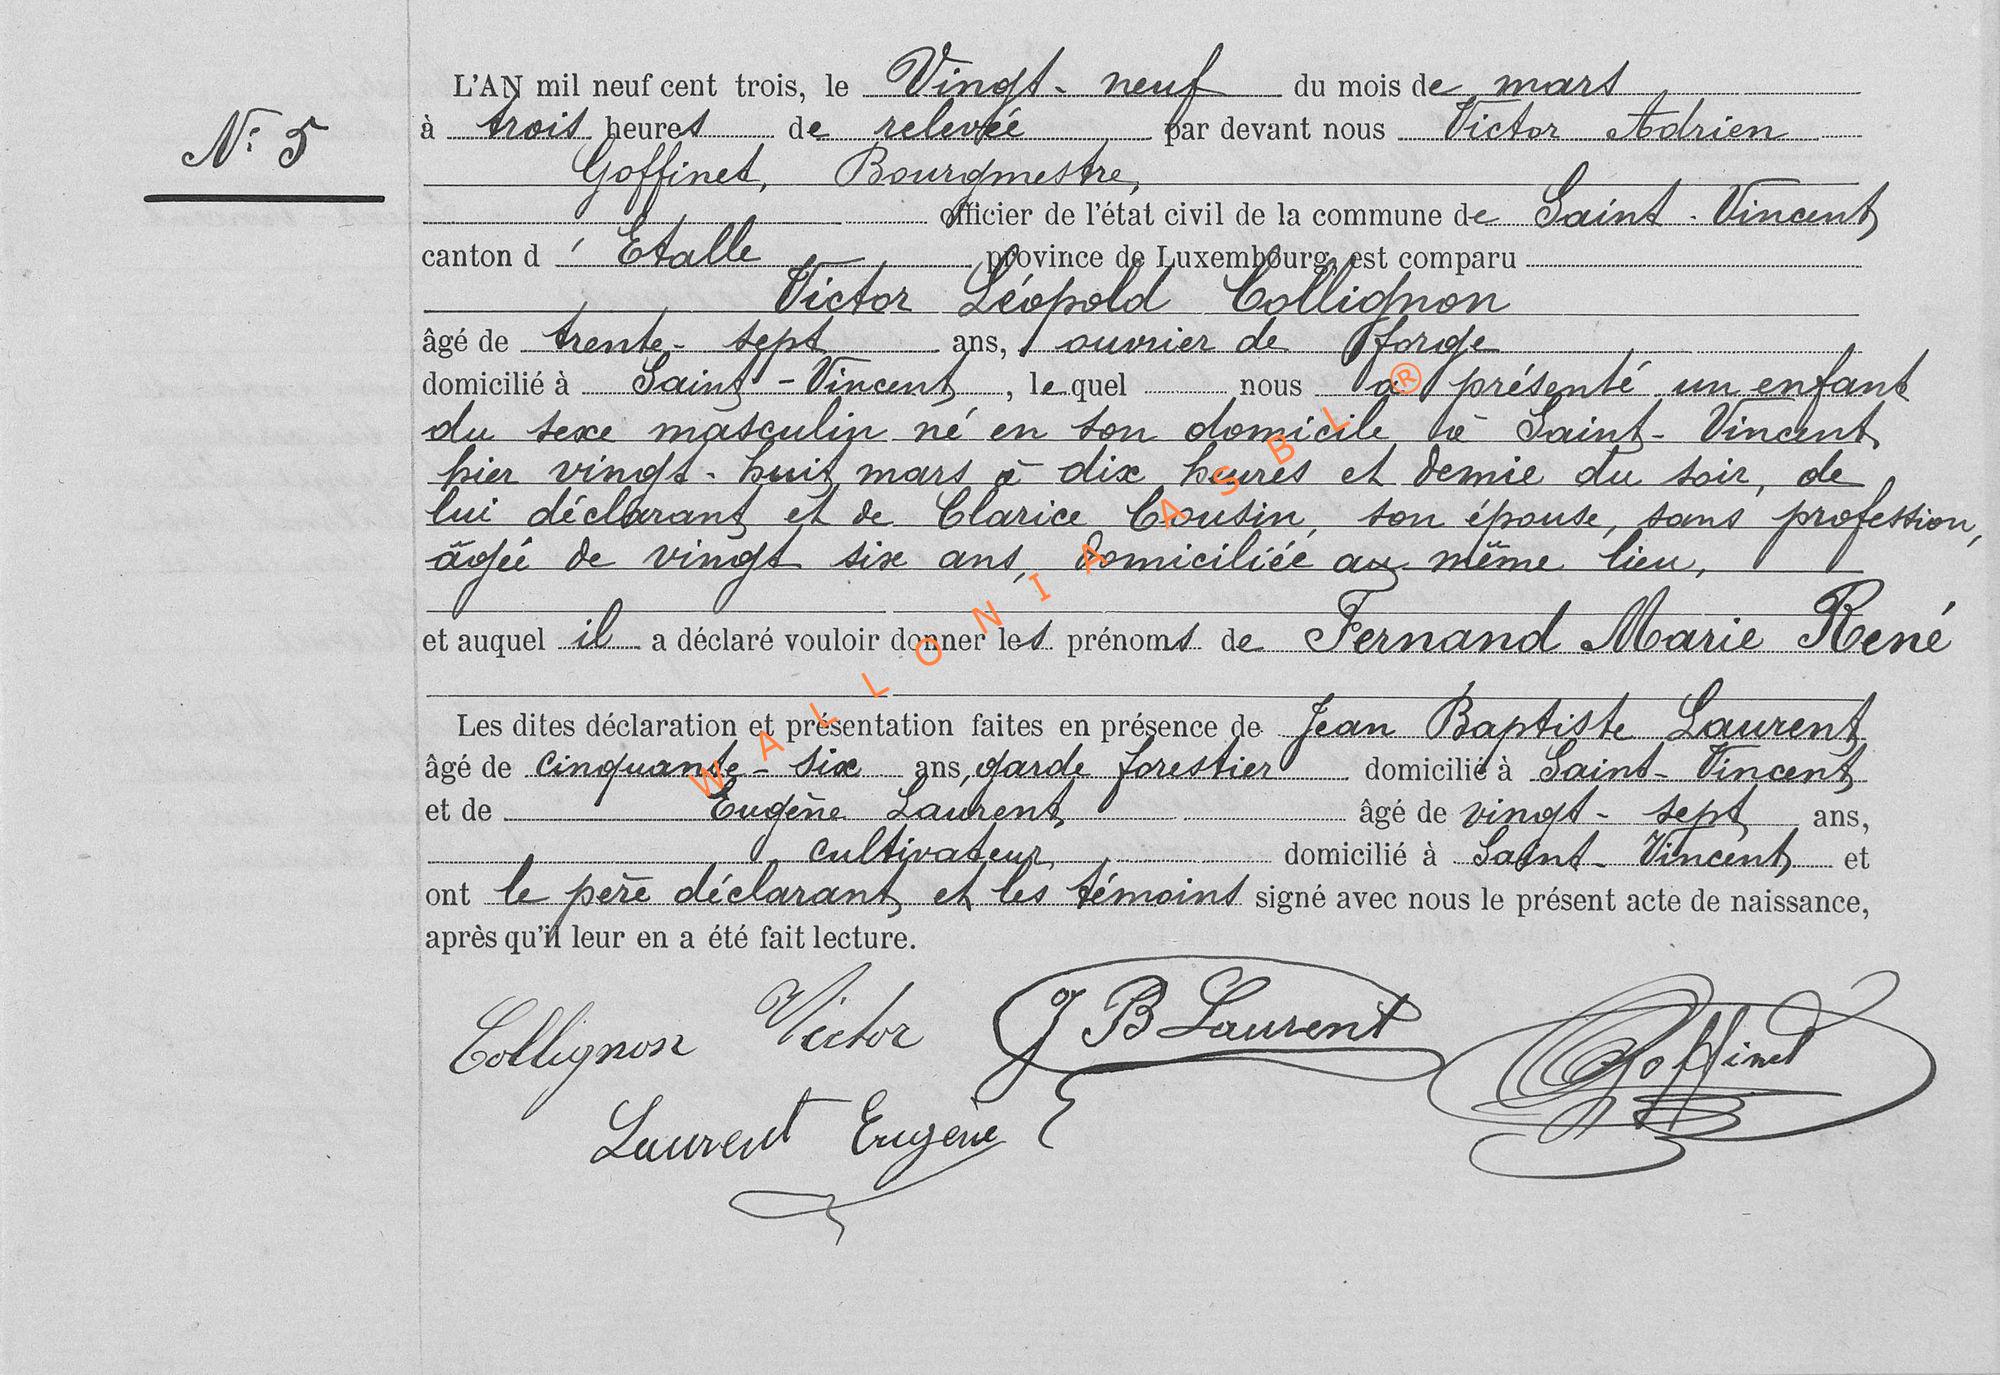 N° 5
L'AN mil neuf cent trois, le Vingt-neuf du mois de mars
à trois heures de relevée par devant nous Victor Adrien
Goffinet, Bourgmestre,
officier de l'état civil de la commune de Saint-Vincent
canton d'Etalle province de Luxembourg, est comparu
Victor Léopold Collignon
âgé de trente-sept ans, ouvrier de forge
domicilié à Saint-Vincent, lequel nous a présenté un enfant
du sexe masculin né en son domicile à Saint-Vincent
hier vingt-huit mars à dix heures et demie du soir, de
lui déclarant et de Clarice Cousin, son épouse, sans profession,
âgée de vingt six ans, domiciliée au même lieu,
et auquel il a déclaré vouloir donner les prénoms de Fernand Marie René
Les dites déclaration et présentation faites en présence de Jean Baptiste Laurent
âgé de cinquante-six ans, garde forestier domicilié à Saint-Vincent
et de Eugène Laurent âgé de vingt-sept ans,
cultivateur domicilié à Saint-Vincent et
ont le père déclarant et les témoins signé avec nous le présent acte de naissance,
après qu'il leur en a été fait lecture.
Collignon Victor J B Laurent Goffinet
Laurent Eugène
WALLONIA ASBL ®